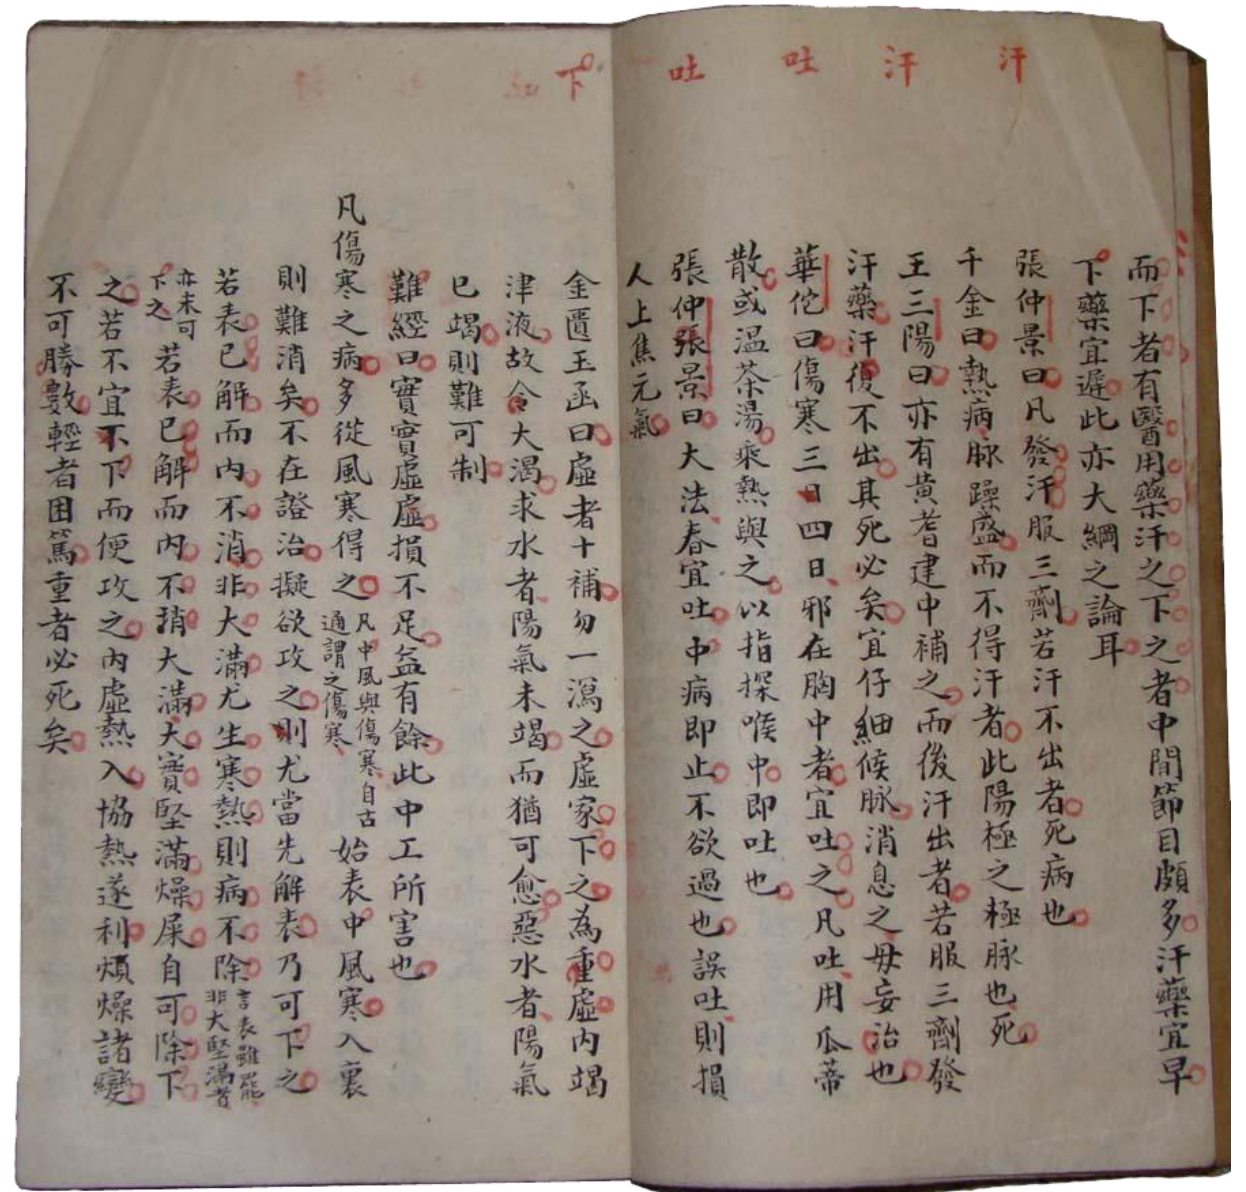 汗
汗
吐
吐
而下者有醫用藥汗之下之者中間節目頗多汗藥宜早
下藥宜遲此亦大綱之論耳
張仲景曰凡發汗服三劑若汗不出者死病也
千金曰熱病脉躁盛而不得汗者此陽極之極脉也死
王三陽曰亦有黄耆建中補之而後汗出者若服三劑發
汗藥汗復不出其死必矣宜仔細候脉消息之毋妄治也
華佗曰傷寒三日四日邪在胸中者宜吐之凡吐用瓜蒂
散或温茶湯乘熱與之以指探喉中即吐也
張仲張景曰大法春宜吐中病即止不欲過也誤吐則損
人上焦元氣
下
金匱玉函曰虛者十補勿一瀉之虛家下之為重虛内竭
津液故令大渴求水者陽氣未竭而猶可愈惡水者陽氣
已竭則難可制
難經曰實實虛虛損不足益有餘此中工所害也
凡傷寒之病多從風寒得之凡中風與傷寒自古通謂之傷寒始表中風寒入裏
則難消矣不在證治擬欲攻之則尤當先解表乃可下之
若表已解而内不消非大滿尤生寒熱則病不除言表雖罷非大堅滿者
亦未可下之若表已解而内不消大滿大實堅滿燥屎自可除下
之若不宜下而便攻之内虛熱入協熱遂利煩燥諸變
不可勝數輕者困篤重者必死矣